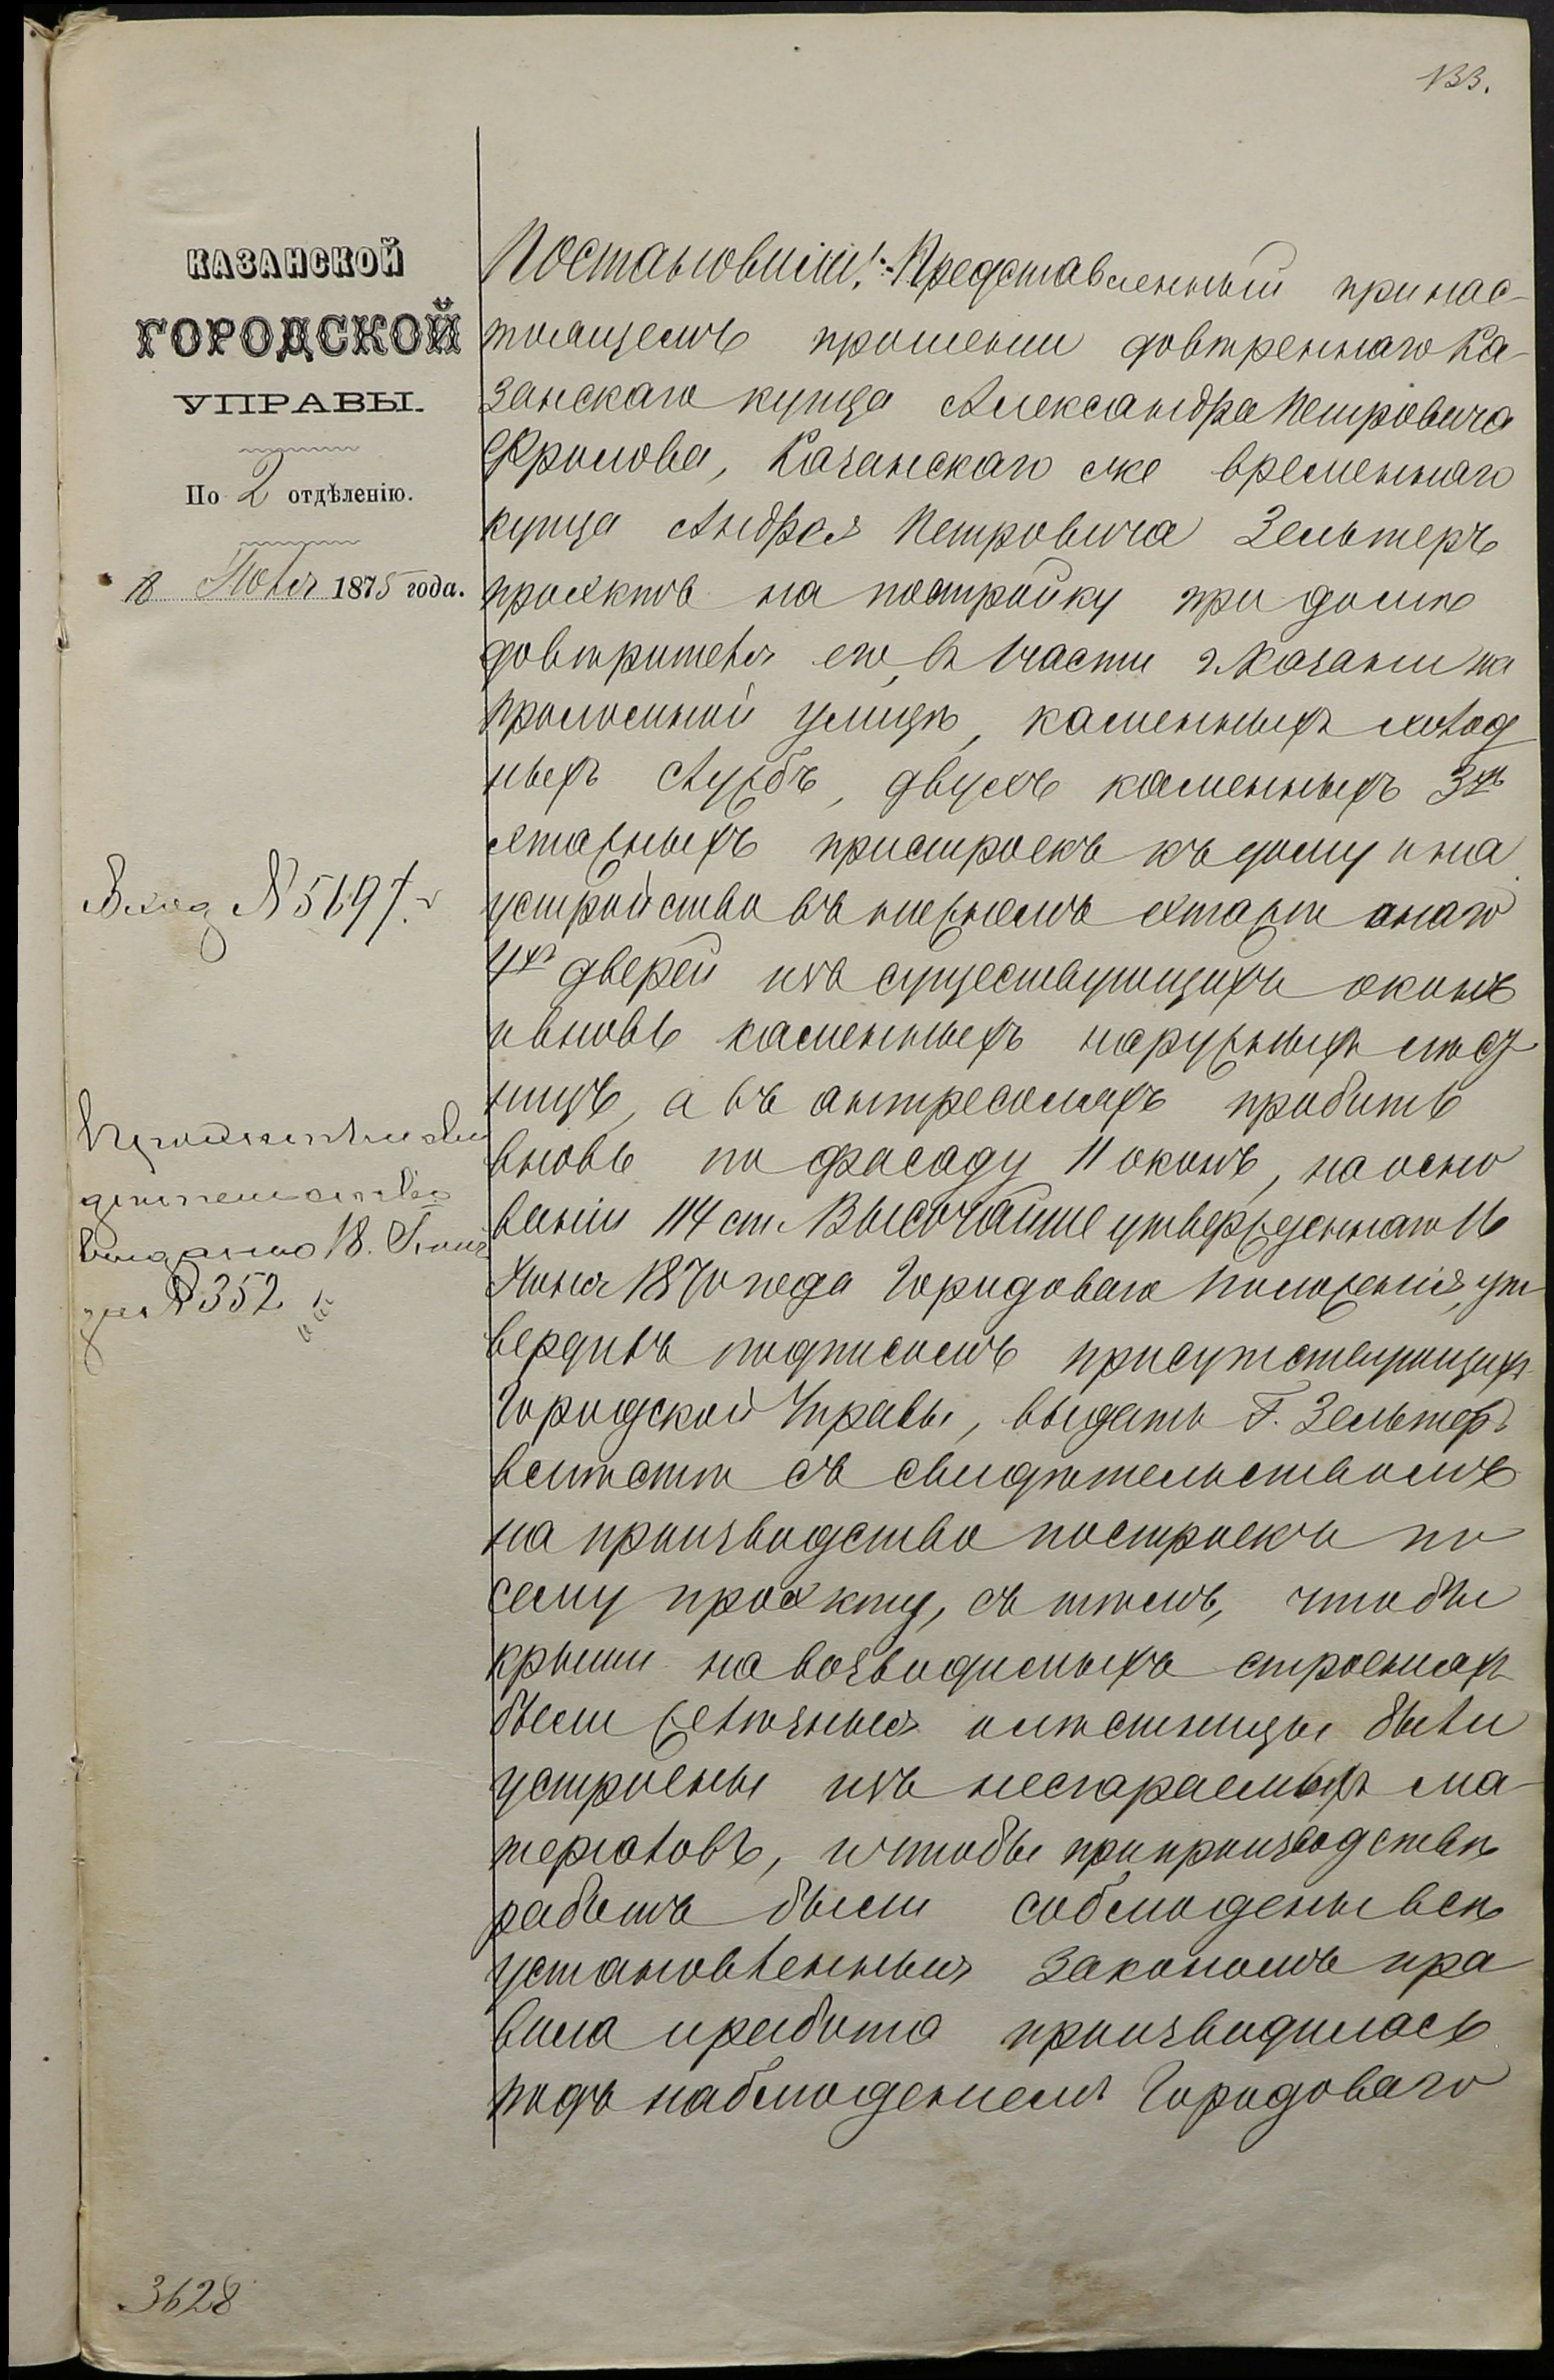 133.
КАЗАНСКОЙ
ГОРОДСКОЙ
УПРАВЫ.
По 2 отдѣленію.
18 Іюня 1875 года.
Вход №5197.
свидѣтельство
выдано 18. Іюня
за №352
Постановили: Представленный при нас-
тоящемъ прошеніи довѣреннаго Ка-
занскаго купца Александра Петровича
Фролова, Казанскаго же временнаго
купца Андрея Петровича Зельтеръ
проектъ на постройку при домѣ
довѣрителя его, въ 1 части г. Казани на
Проломной улицѣ, каменныхъ холод
ныхъ службъ, двухъ каменныхъ 3хъ
етажныхъ пристроекъ къ дому и на
устройство въ нижнемъ етажѣ онаго
4хъ дверей изъ существующихъ оконъ
и вновь каменныхъ наружныхъ лѣст
ницъ, а въ антресоляхъ пробить
вновь по фасаду 11 оконъ, на осно
ваніи 114 ст. Высочайше утвержденнаго 16
Іюня 1870 года Городоваго Положенія, ут
вердивъ подписомъ присутствующихъ
Городской Управы, выдать Г. Зельтеръ
вмѣстѣ съ свидѣтельствомъ
на производство построекъ по
сему проэкту, съ тѣмъ, чтобы
крыши на возводимыхъ строеніяхъ
были желѣзныя и лѣстницы были
устроены изъ несгараемыхъ ма-
теріаловъ, и чтобы при производствѣ
работъ были соблюдены всѣ
установленныя закономъ пра
вила и работа производилась
подъ наблюденіемъ Городоваго
3628